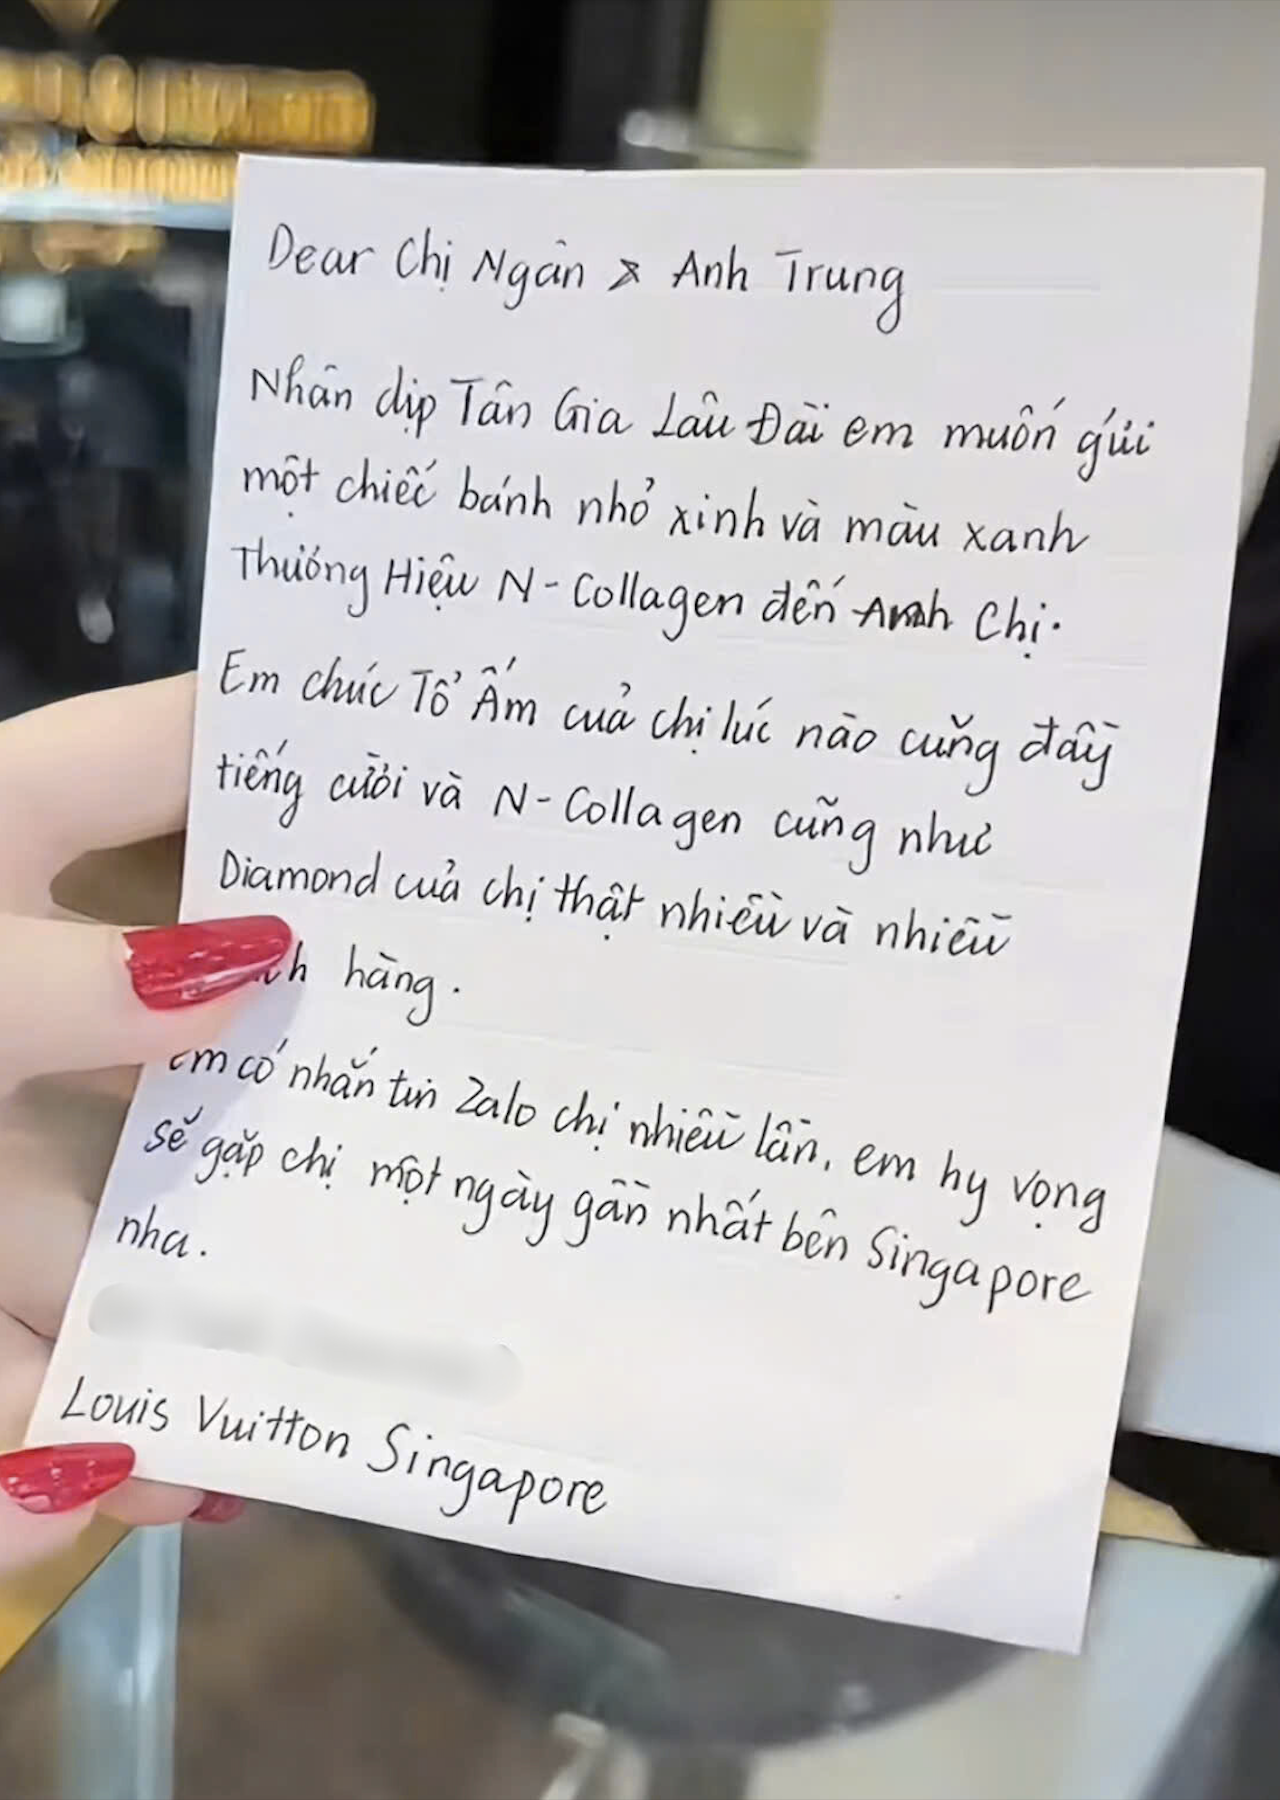 Dear Chị Ngân & Anh Trung
Nhân dịp Tân Gia Lâu Đài em muốn gửi
một chiếc bánh nhỏ xinh và màu xanh
Thương Hiệu N-Collagen đến Anh Chị.
Em chúc Tổ Ấm của chị lúc nào cũng đầy
tiếng cười và N-Collagen cũng như
Diamond của chị thật nhiều và nhiều
hàng.
Em có nhắn tin Zalo chị nhiều lần, em hy vọng
sẽ gặp chị một ngày gần nhất bên Singapore
nha.
Louis Vuitton Singapore